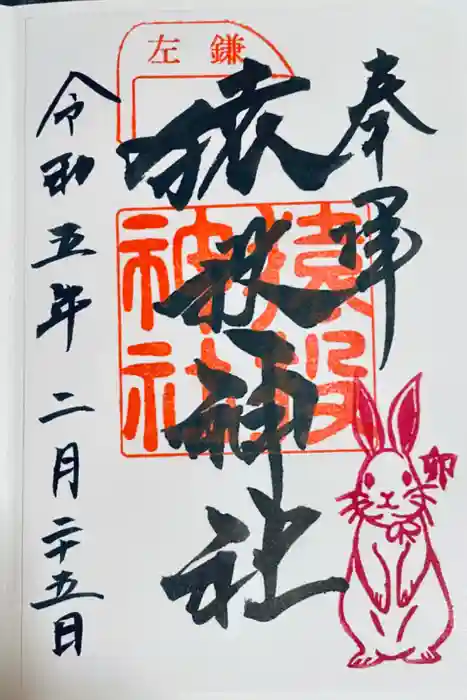 奉拝
左鎌
猿投神社
猿投神社
卯
令和五年 二月 二十五日